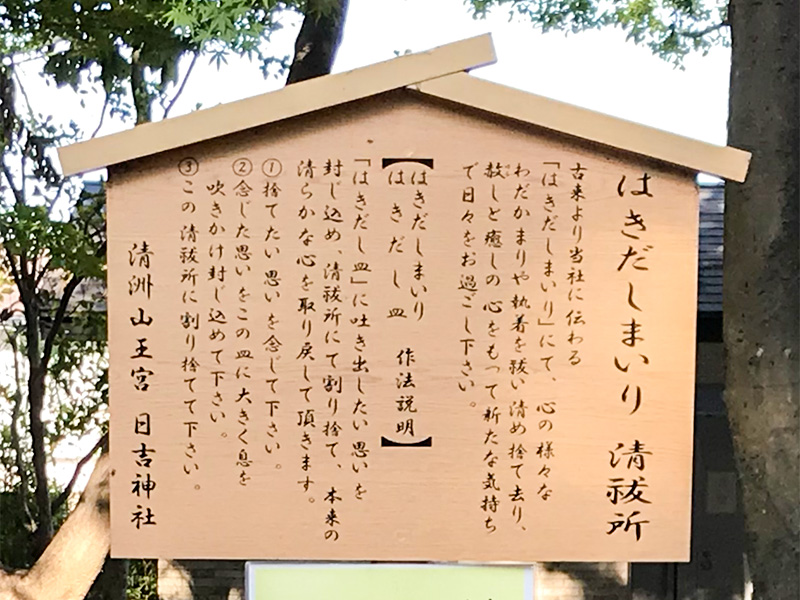 はきだしまいり 清祓所
古来より当社に伝わる
「はきだしまいり」にて、心の様々な
わだかまりや執着を祓い清め捨て去り、
赦しと癒しの心をもって新たな気持ち
で日々をお過ごし下さい。
【はきだしまいり
はきだし皿 作法説明】
「はきだし皿」に吐き出したい思いを
封じ込め、清祓所にて割り捨て、本来の
清らかな心を取り戻して頂きます。
①捨てたい思いを念じて下さい。
②念じた思いをこの皿に大きく息を
吹きかけ封じ込めて下さい。
③この清祓所に割り捨てて下さい。
清洲山王宮 日吉神社